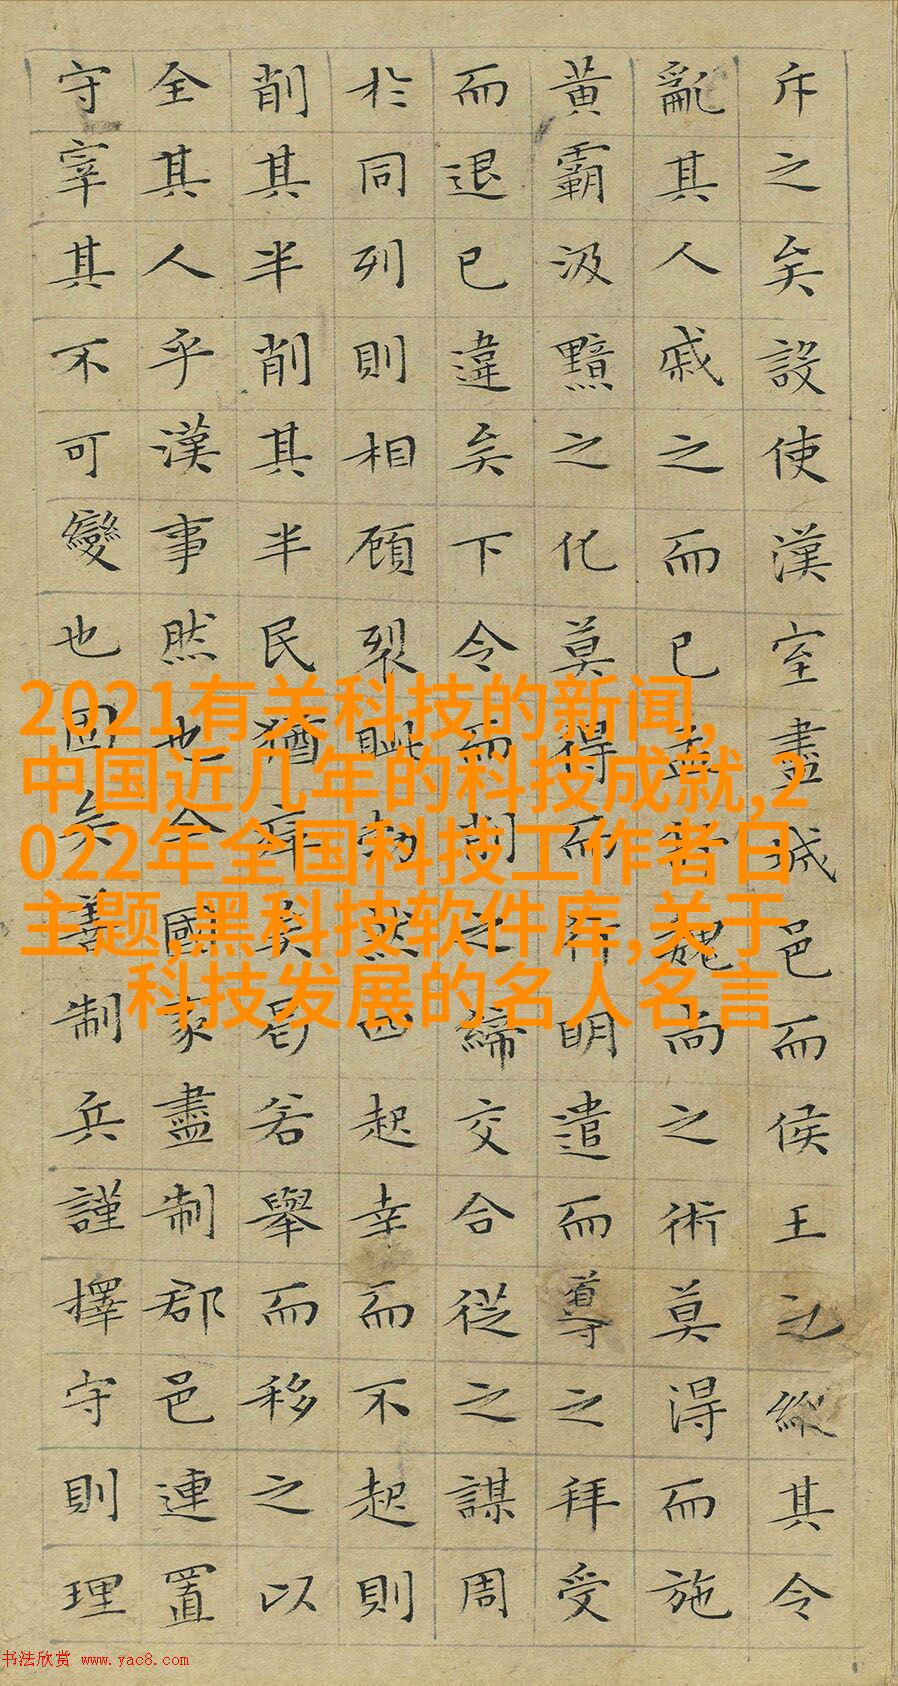 斥之矣設使漢室盡城邑而侯王之縱其令
亂其人戚之而已孟舒魏尚之術莫得而施
黃霸汲黯之化莫得而行明遣而導之拜受
而退已違矣下令而削之締交合從之謀周
於同列則相顧裂眦勃然而起幸而不起則
削其半削其半民猶瘁矣曷若舉而移之以
全其人乎漢事然也今國家盡制郡邑連置
守宰其不可變也固矣善制兵謹擇守則理
2021有关科技的新闻,
中国近几年的科技成就,2
022年全国科技工作者日
主题,黑科技软件库,关于
科技发展的名人名言
书法欣赏 www.yac8.com